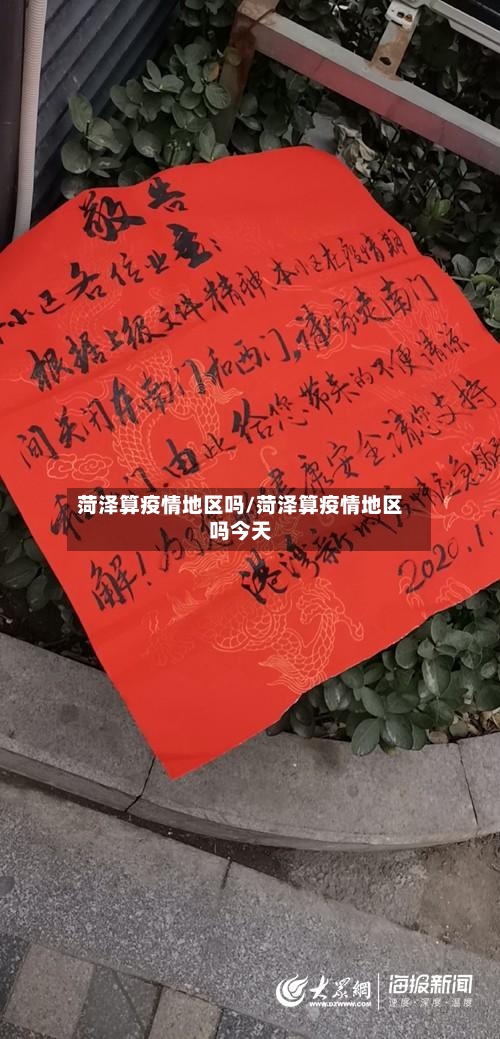 敬告
小区各位业主:
根据上级文件精神,本小区在疫情期
间关闭东南门和西门,请大家走南门
由此给您带来的不便请谅
解!为了您的健康安全请您支持
港湾新城
2020.1.
菏泽算疫情地区吗/菏泽算疫情地区
吗今天
大众網
WWW.DZWWW.COM
海报新闻
速度·深度·温度